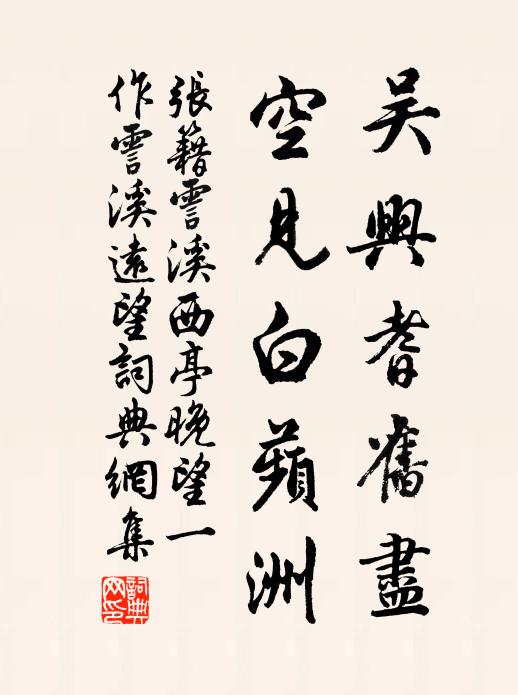 吳興耆舊盡
空見白蘋洲
張籍霅溪西亭晚望一
作霅溪遠望詞典網集
詞典網印